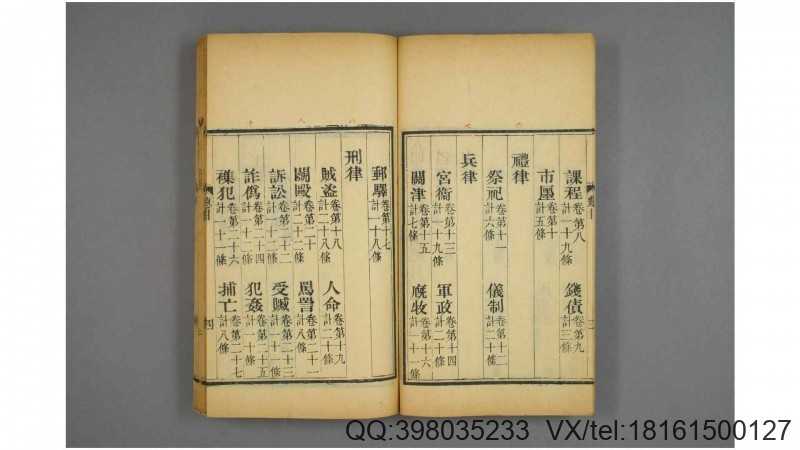 課程 卷第八 計一十九條 錢債 卷第九 計三條
市廛 卷第十 計五條
禮律
祭祀 卷第十一 計六條 儀制 卷第十二 計二十條
兵律
宮衛 卷第十三 計一十九條 軍政 卷第十四 計二十條
關津 卷第十五 計七條 廐牧 卷第十六 計一十一條
郵驛 卷第十七 計一十八條
刑律
賊盗 卷第十八 計二十八條 人命 卷第十九 計二十條
鬭毆 卷第二十 計二十二條 罵詈 卷第二十一 計八條
訴訟 卷第二十二 計一十二條 受贓 卷第二十三 計一十一條
詐僞 卷第二十四 計一十二條 犯姦 卷第二十五 計一十條
襍犯 卷第二十六 計一十一條 捕亡 卷第二十七 計八條
四
QQ:398035233 VX/tel:18161500127